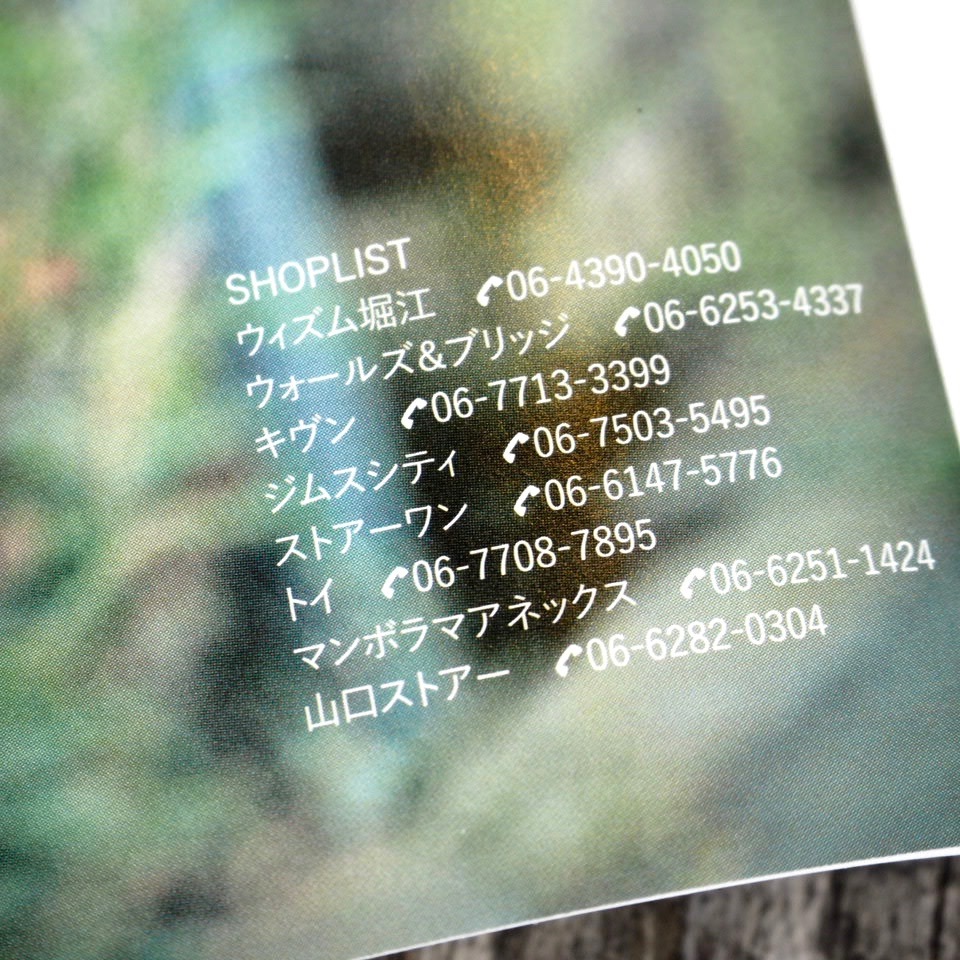 SHOPLIST
ウィズム堀江 06-4390-4050
ウォールズ&ブリッジ 06-6253-4337
キヴン 06-7713-3399
ジムスシティ 06-7503-5495
ストアーワン 06-6147-5776
トイ 06-7708-7895
マンボラマアネックス 06-6251-1424
山口ストアー 06-6282-0304